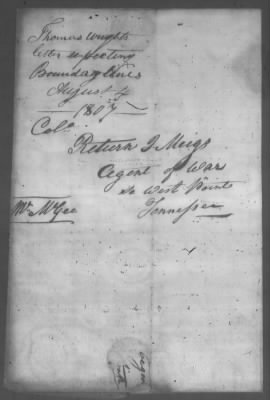 Thomas Wrights
letter respecting
Boundary lines
August 4
1807
Colo.
Return J Meigs
Agent of War
So West Point
Tennessee
Mr. McGee